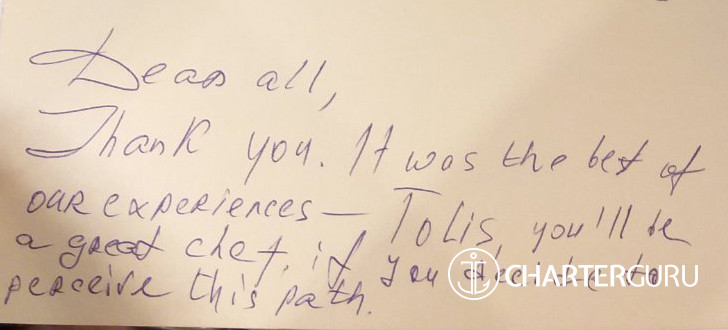 Dear all,
Thank you. It was the best of
our experiences — Tolis, you'll be
a great chef, if you decide to
perceive this path.
CHARTERGURU